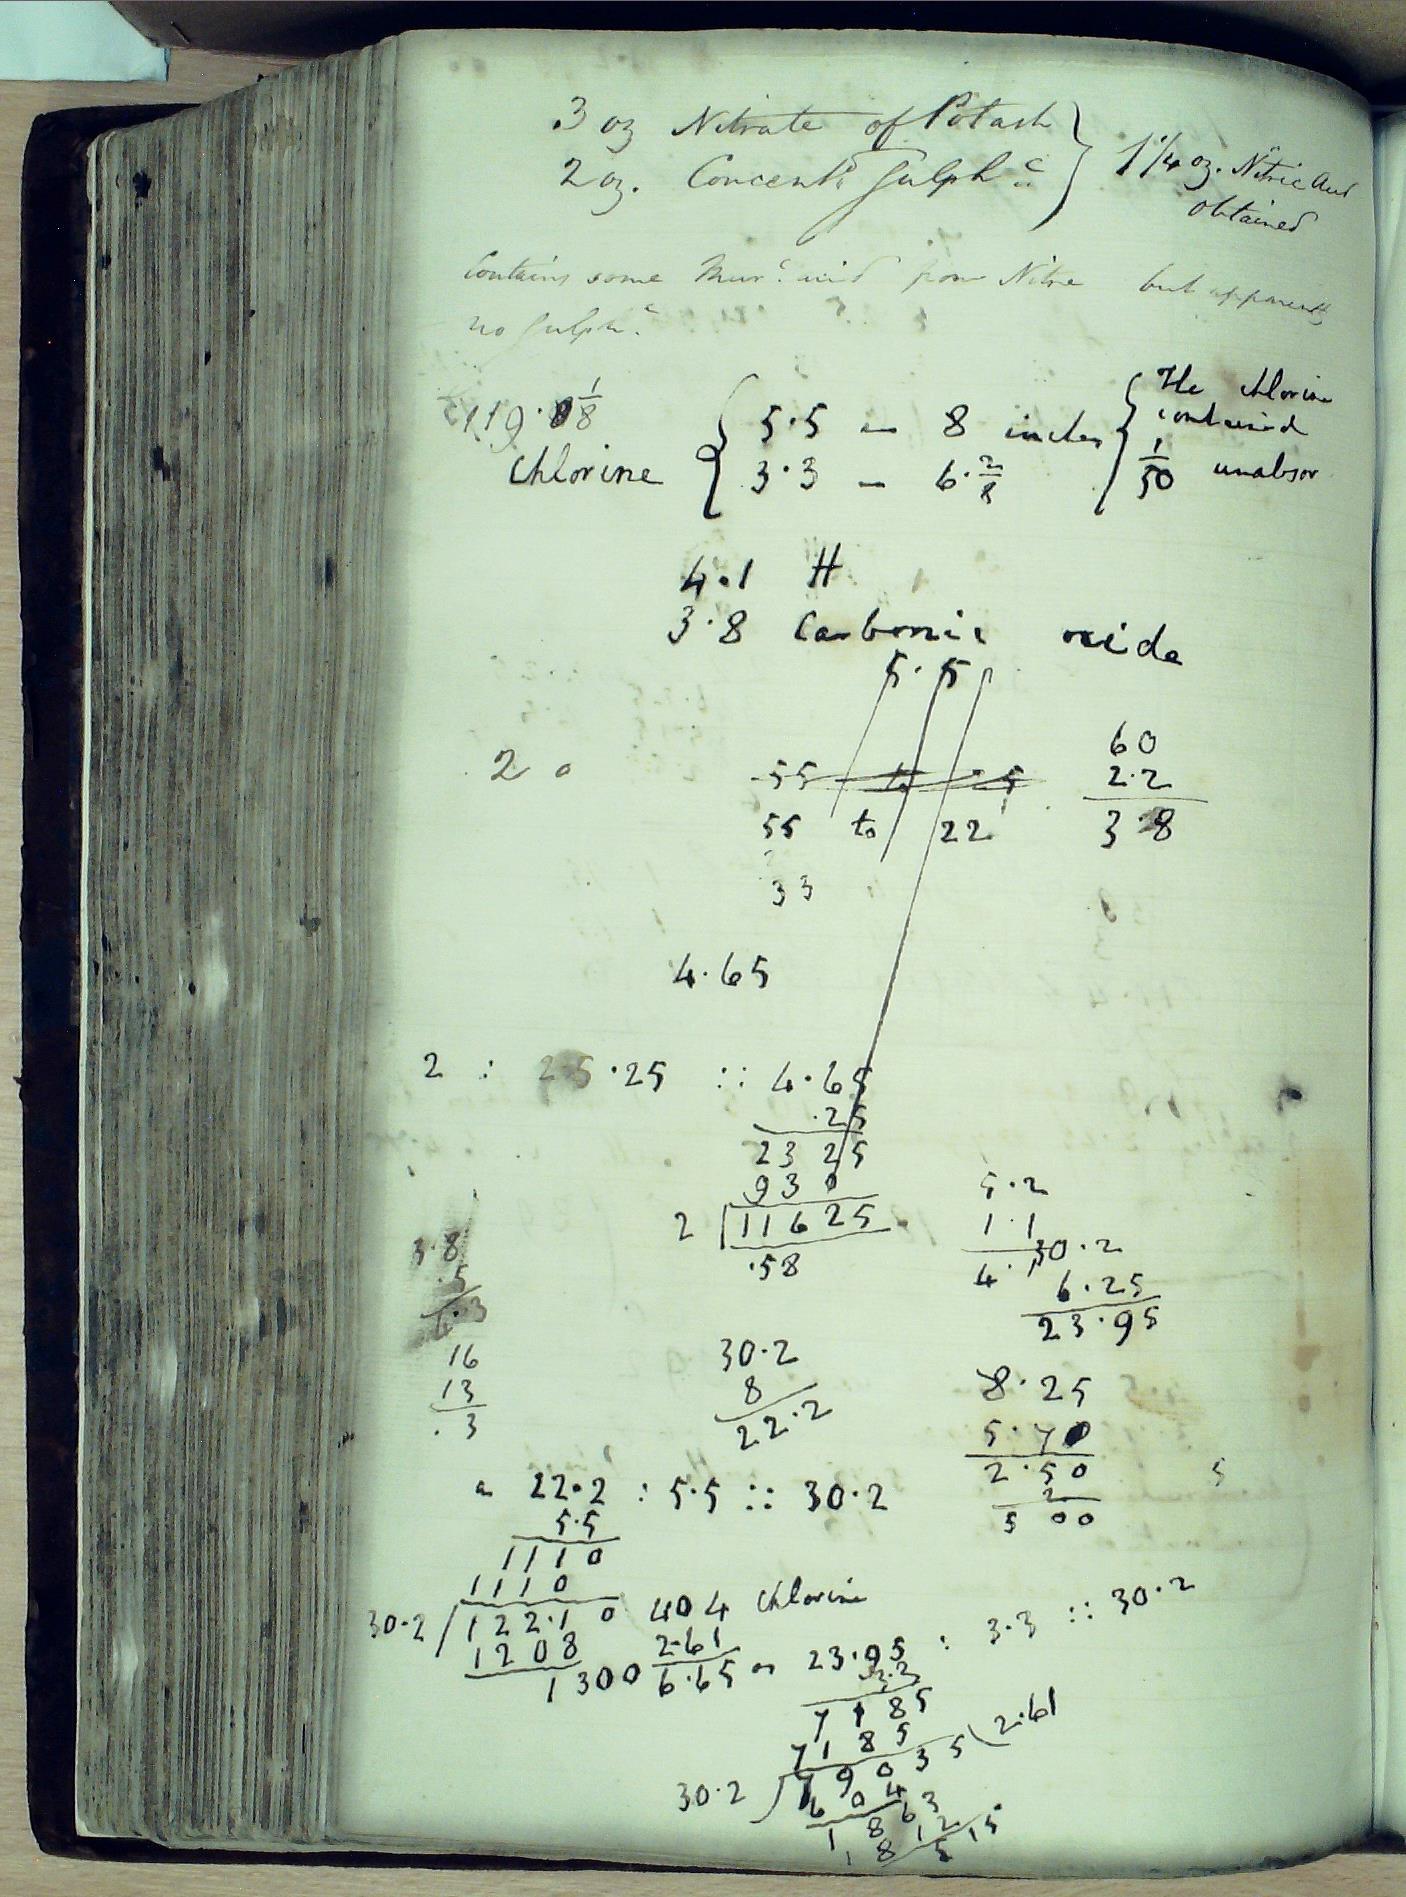 .3 oz Nitrate of Potash
2 oz. Concentd Sulphc
1 1/4 oz. Nitric Acid
obtained
Contains some Murc acid from Nitre but apparently
no Sulphc
119.8 1/8
Chlorine
5.5 — 8 inches
3.3 — 6.2/8
The chlorine
contained
1/50 unabsor
4.1 H
3.8 Carbonic oxide
5.5
2 0
55 to
55 to 22
33
60
2.2
3.8
4.65
2 : 25.25 :: 4.65
.25
2325
930
2 11625
.58
5.2
1.1
4.1
30.2
6.25
23.95
3.8
.5
16
13
.3
30.2
8
22.2
8.25
5.70
2.50
2
5 00
5
22.2 : 5.5 :: 30.2
5.5
1110
1110
30.2 122.10 404 Chlorine
1208 2.61
1300 6.65
23.95 : 3.3 :: 30.2
3.3
7185
7185
30.2 79035 2.61
604
1863
1812
515